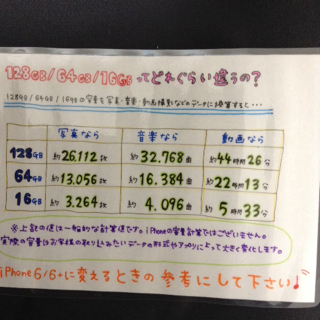 128GB/64GB/16GBってどれぐらい違うの?
128GB/64GB/16GBの容量を写真・音楽・動画撮影などのデータに換算すると・・・
写真なら 音楽なら 動画なら
128GB 約26,112枚 約32,768曲 約44時間26分
64GB 約13,056枚 約16,384曲 約22時間13分
16GB 約3,264枚 約4,096曲 約5時間33分
※上記の値は一般的な計算値です。iPhoneの容量計算ではございません。
実際の容量はお客様の取り込みたいデータの形式やアプリによって大きく変化します。
iPhone6/6+に変えるときの参考にして下さい♪